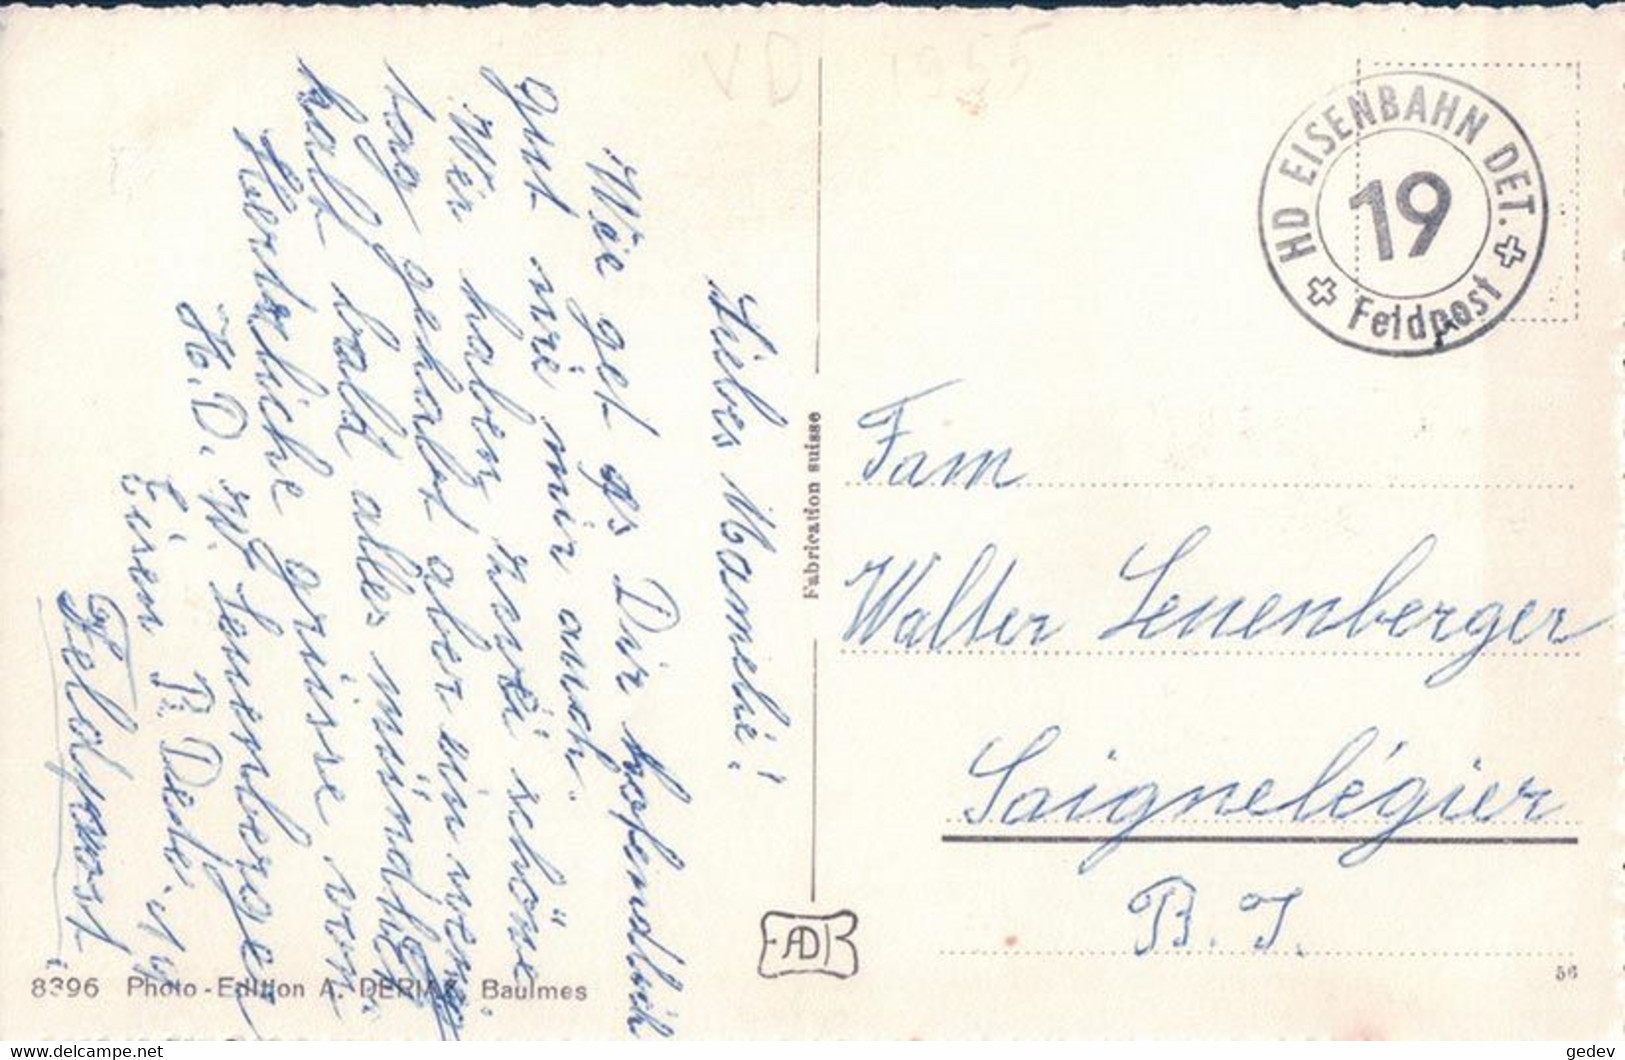 VD 1955
Liebes Mameli!
Wie get es Dir hofendlich
gut wie mir auch.
Wir haben zwei schöne
tag gehabt aber ein wenig
halt bald alles mündlich
Herzliche grüsse von
H.D. W. Leuenberger
Eisen B. Dede. 19
Feldpost
8396 Photo-Edition A. DERIAZ, Baulmes
Fabrication suisse
HD EISENBAHN DET.
19
Feldpost
Fam
Walter Leuenberger
Saignelégier
B. J.
56
https://www.delcampe.net
gedev